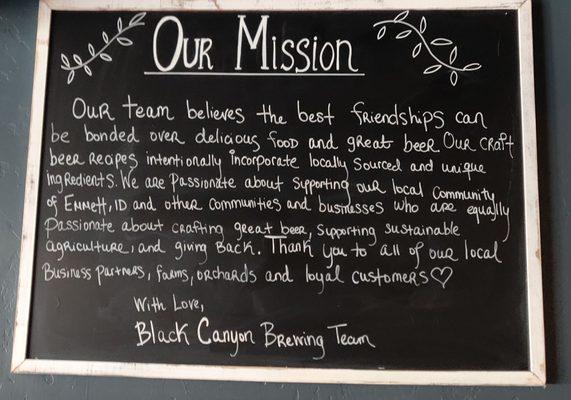 Our Mission
Our team believes the best friendships can
be bonded over delicious food and great beer Our craft
beer recipes intentionally incorporate locally sourced and unique
ingredients. We are passionate about supporting our local community
of Emmett, ID and other communities and businesses who are equally
passionate about crafting great beer, supporting sustainable
agriculture, and giving back. Thank you to all of our local
Business partners, farms, orchards and loyal customers♡
With Love,
Black Canyon Brewing Team